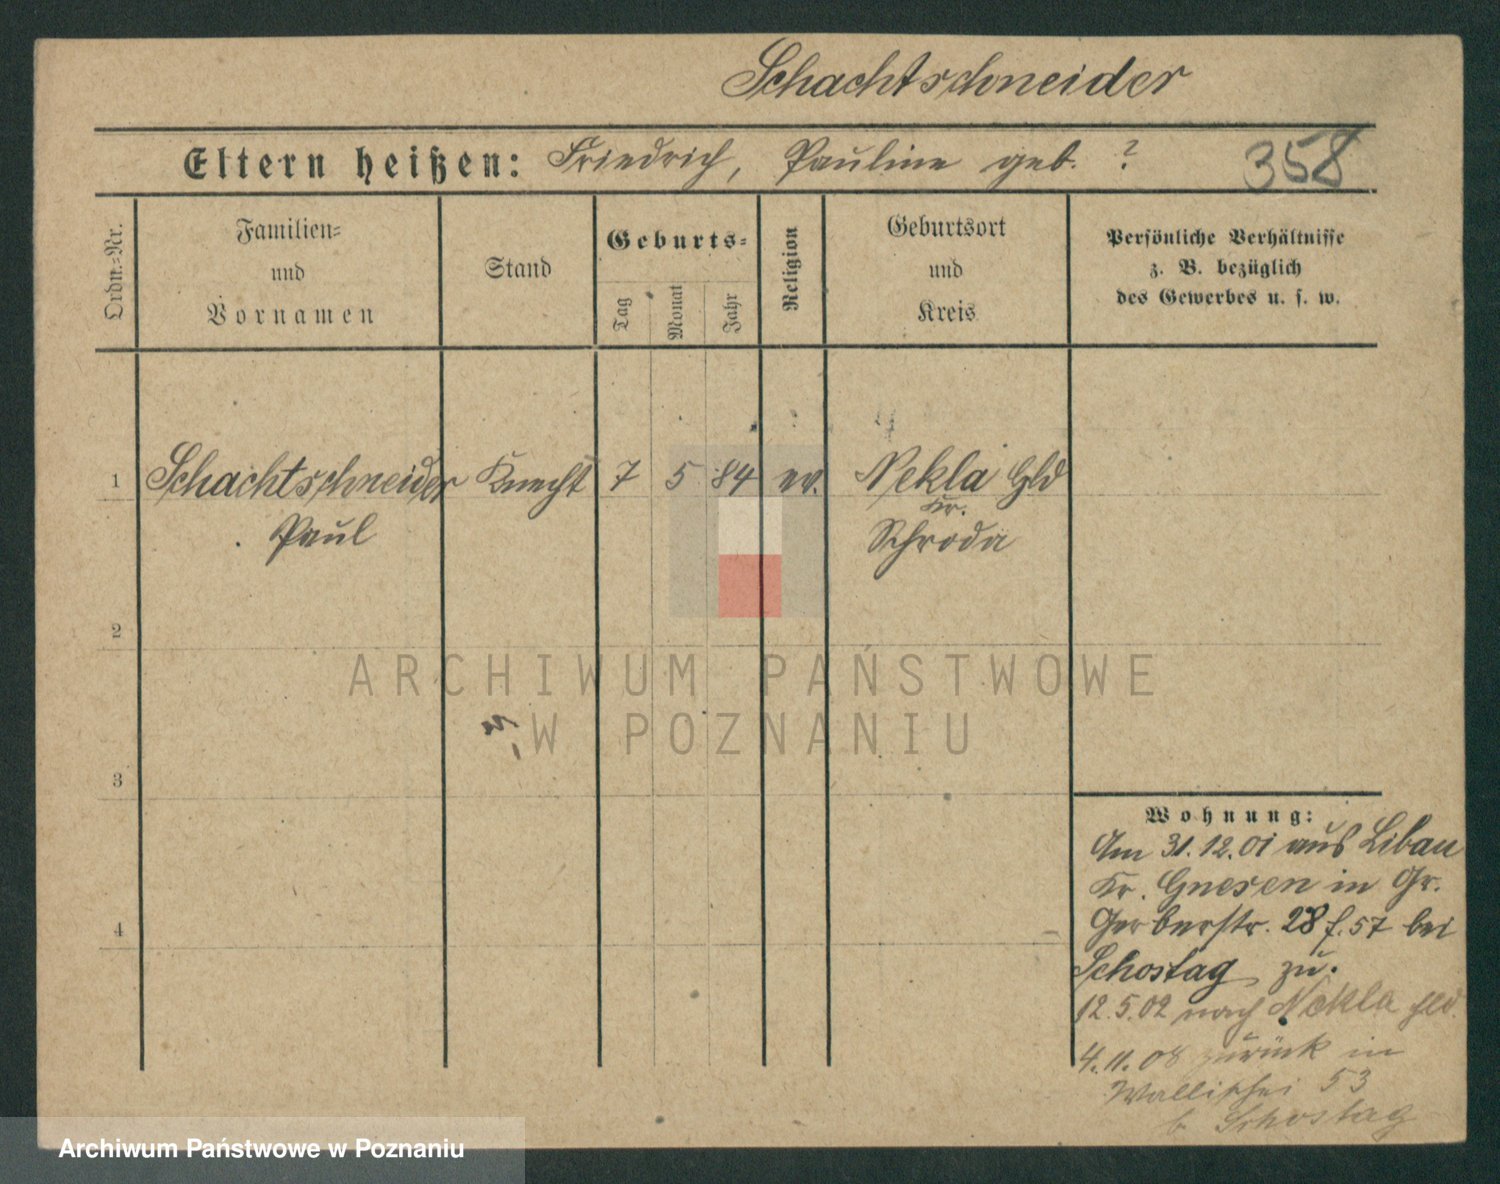 Schachtschneider
Eltern heißen: Friedrich, Pauline geb. ?
358
Ordn.=Nr.
Familien=
und
Vornamen
Stand
Geburts=
Tag
Monat
Jahr
Religion
Geburtsort
und
Kreis
Persönliche Verhältnisse
z. B. bezüglich
des Gewerbes u. s. w.
1 Schachtschneider Knecht 7 5 84 ev. Nekla Hld
Kr.
Paul Schroda
2
ARCHIWUM PAŃSTWOWE
W POZNANIU
3
Wohnung:
Am 31.12.01 aus Libau
Kr. Gnesen in Gr.
Gerberstr. 28 f. 57 bei
4
Schostag zu.
12.5.02 nach Nekla Hld.
4.11.08 zurück in
Wallischei 53
b Schostag
Archiwum Państwowe w Poznaniu